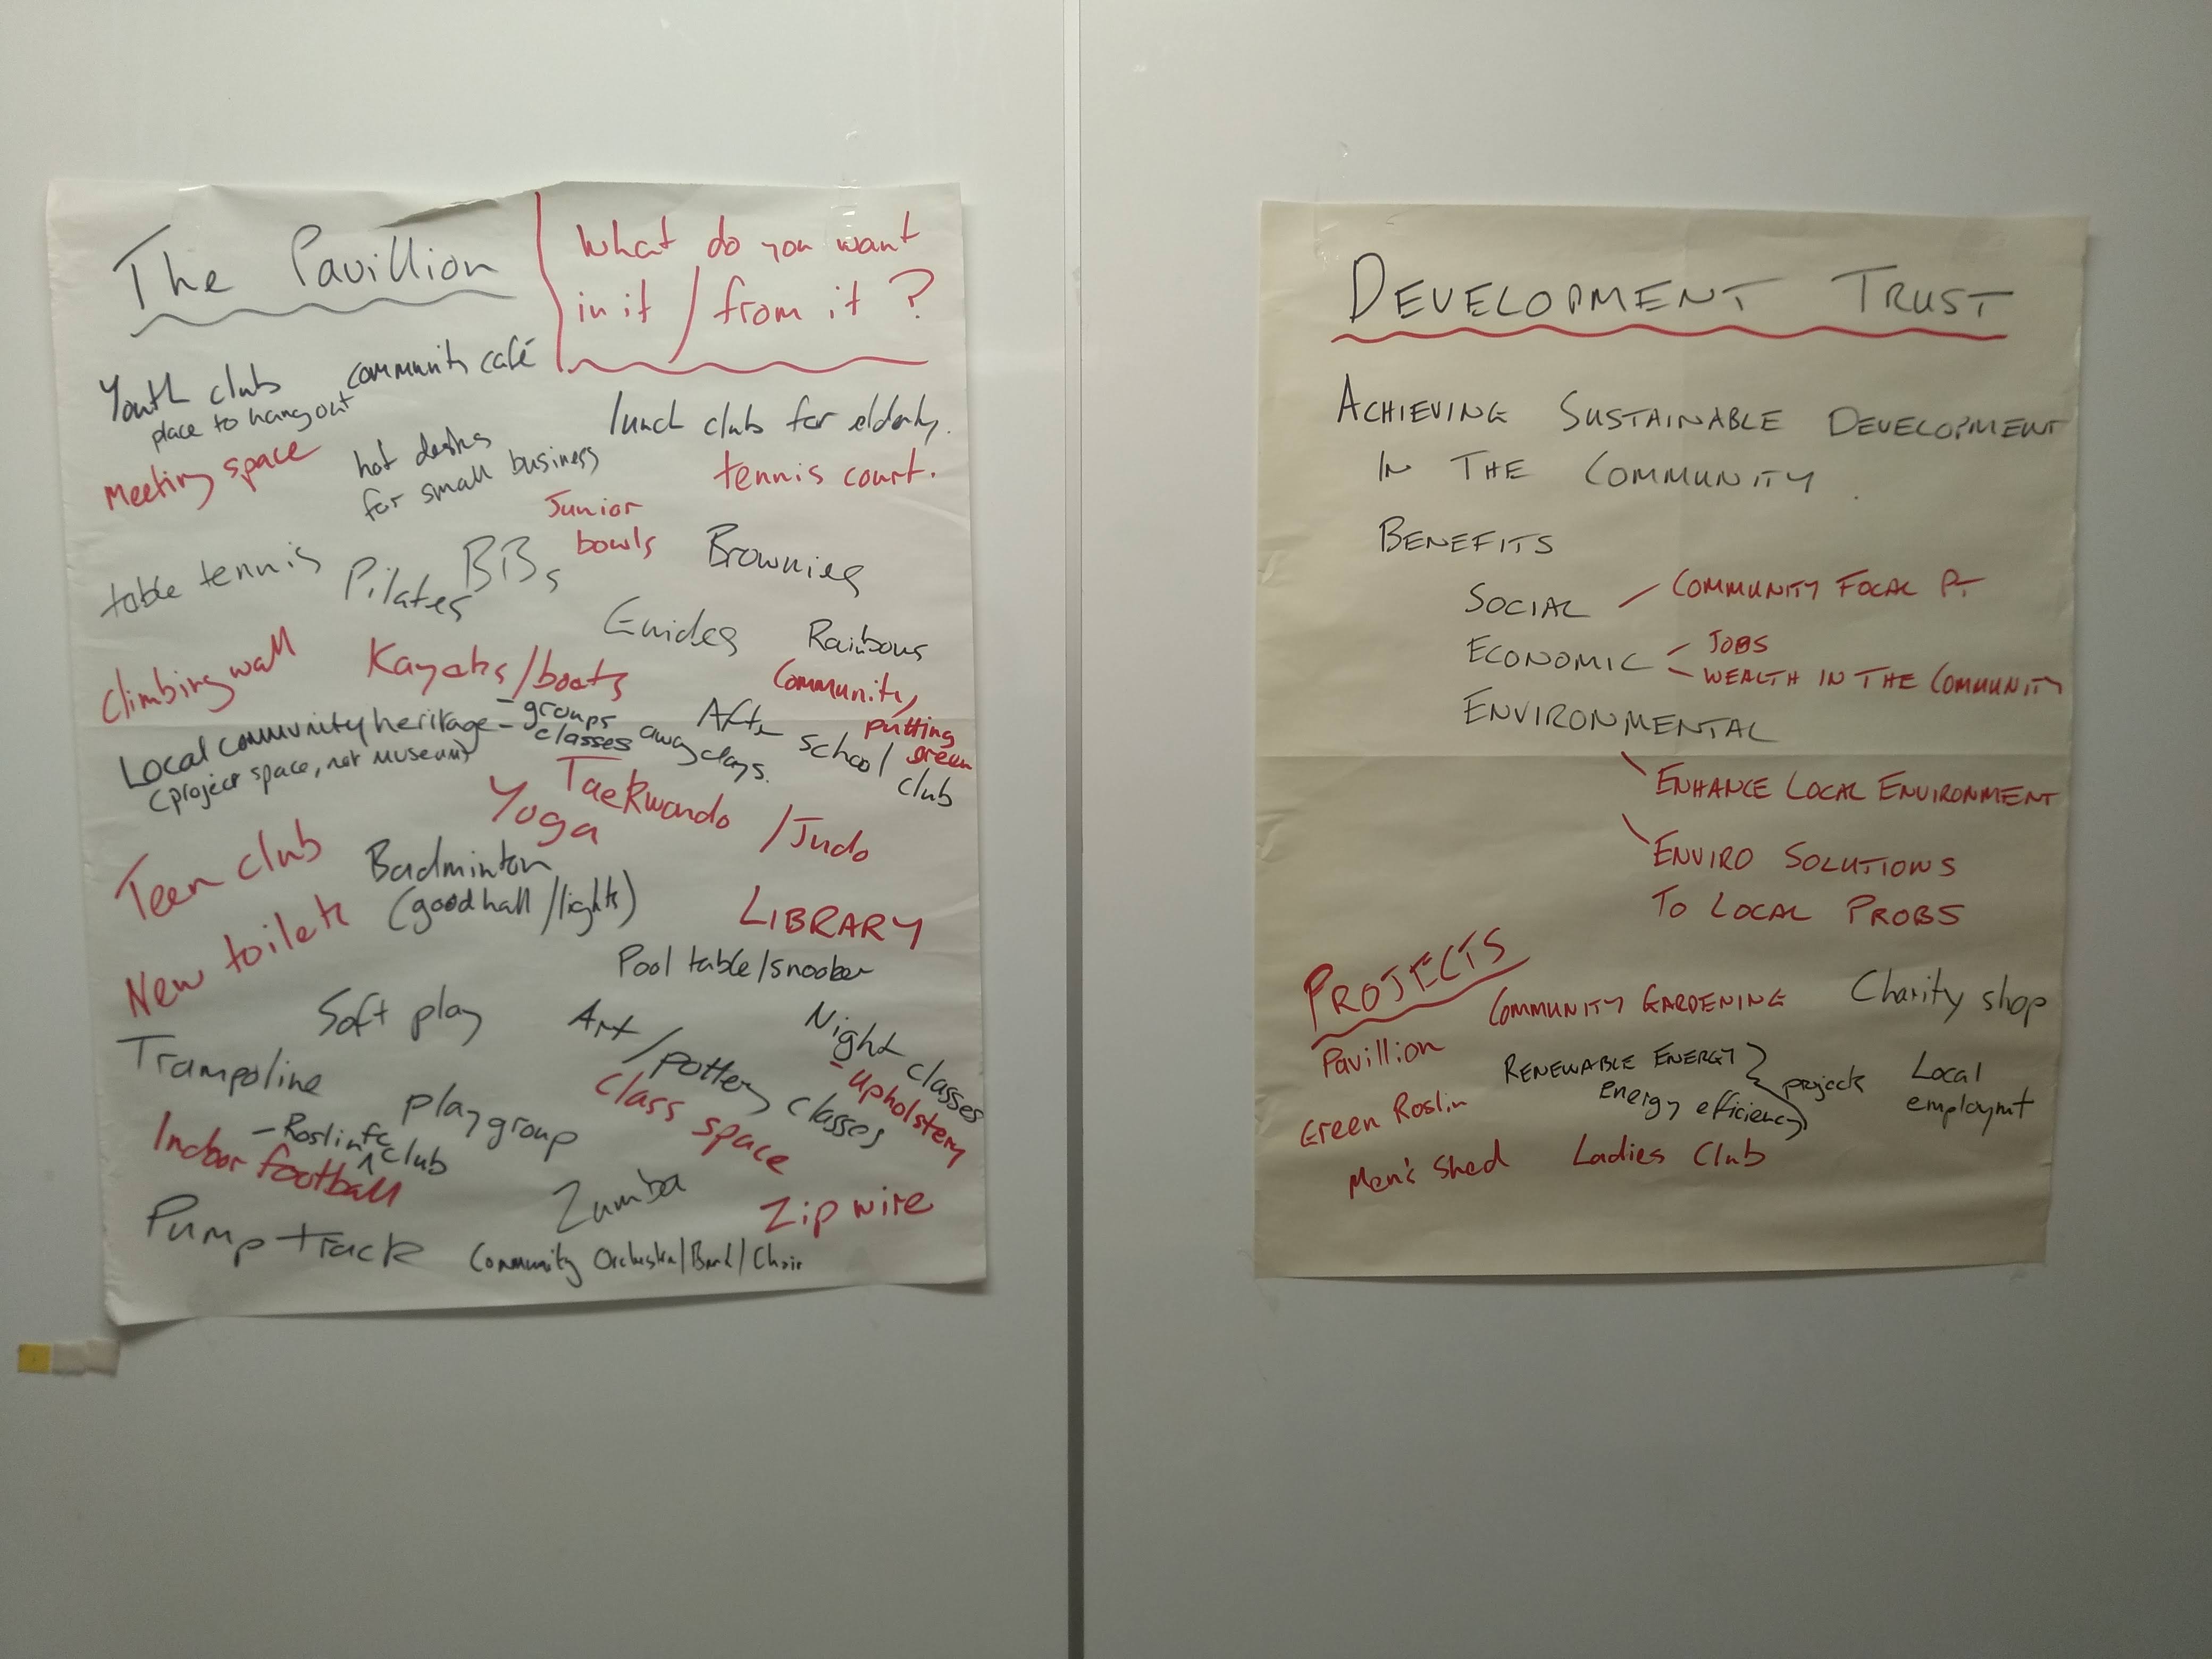 The Pavillion
What do you want
in it / from it ?
Youth club
place to hang out
community café
lunch club for elderly.
Meeting space
hot desks
for small business
tennis court.
Junior
bowls
table tennis
Pilates
BBs
Brownies
Guides
Rainbows
Climbing wall
Kayaks/boats
Community
putting
green
Local community heritage
(project space, not museum)
- groups
- classes
away days.
After
school
club
Taekwondo
/Judo
Yoga
Teen club
Badminton
(good hall/lights)
LIBRARY
New toilets
Pool table/snooker
Soft play
Art/
pottery classes
Night classes
- upholstery
Trampoline
playgroup
class space
- Roslin FC club
Indoor football
Zumba
Zip wire
Pump track
Community Orchestra/Band/Choir
DEVELOPMENT TRUST
ACHIEVING SUSTAINABLE DEVELOPMENT
IN THE COMMUNITY.
BENEFITS
SOCIAL
COMMUNITY FOCAL PT
ECONOMIC
JOBS
WEALTH IN THE COMMUNITY
ENVIRONMENTAL
ENHANCE LOCAL ENVIRONMENT
ENVIRO SOLUTIONS
TO LOCAL PROBS
PROJECTS
COMMUNITY GARDENING
Charity shop
Pavillion
RENEWABLE ENERGY
Energy efficiency
projects
Local
employmt
Green Roslin
Men's Shed
Ladies Club